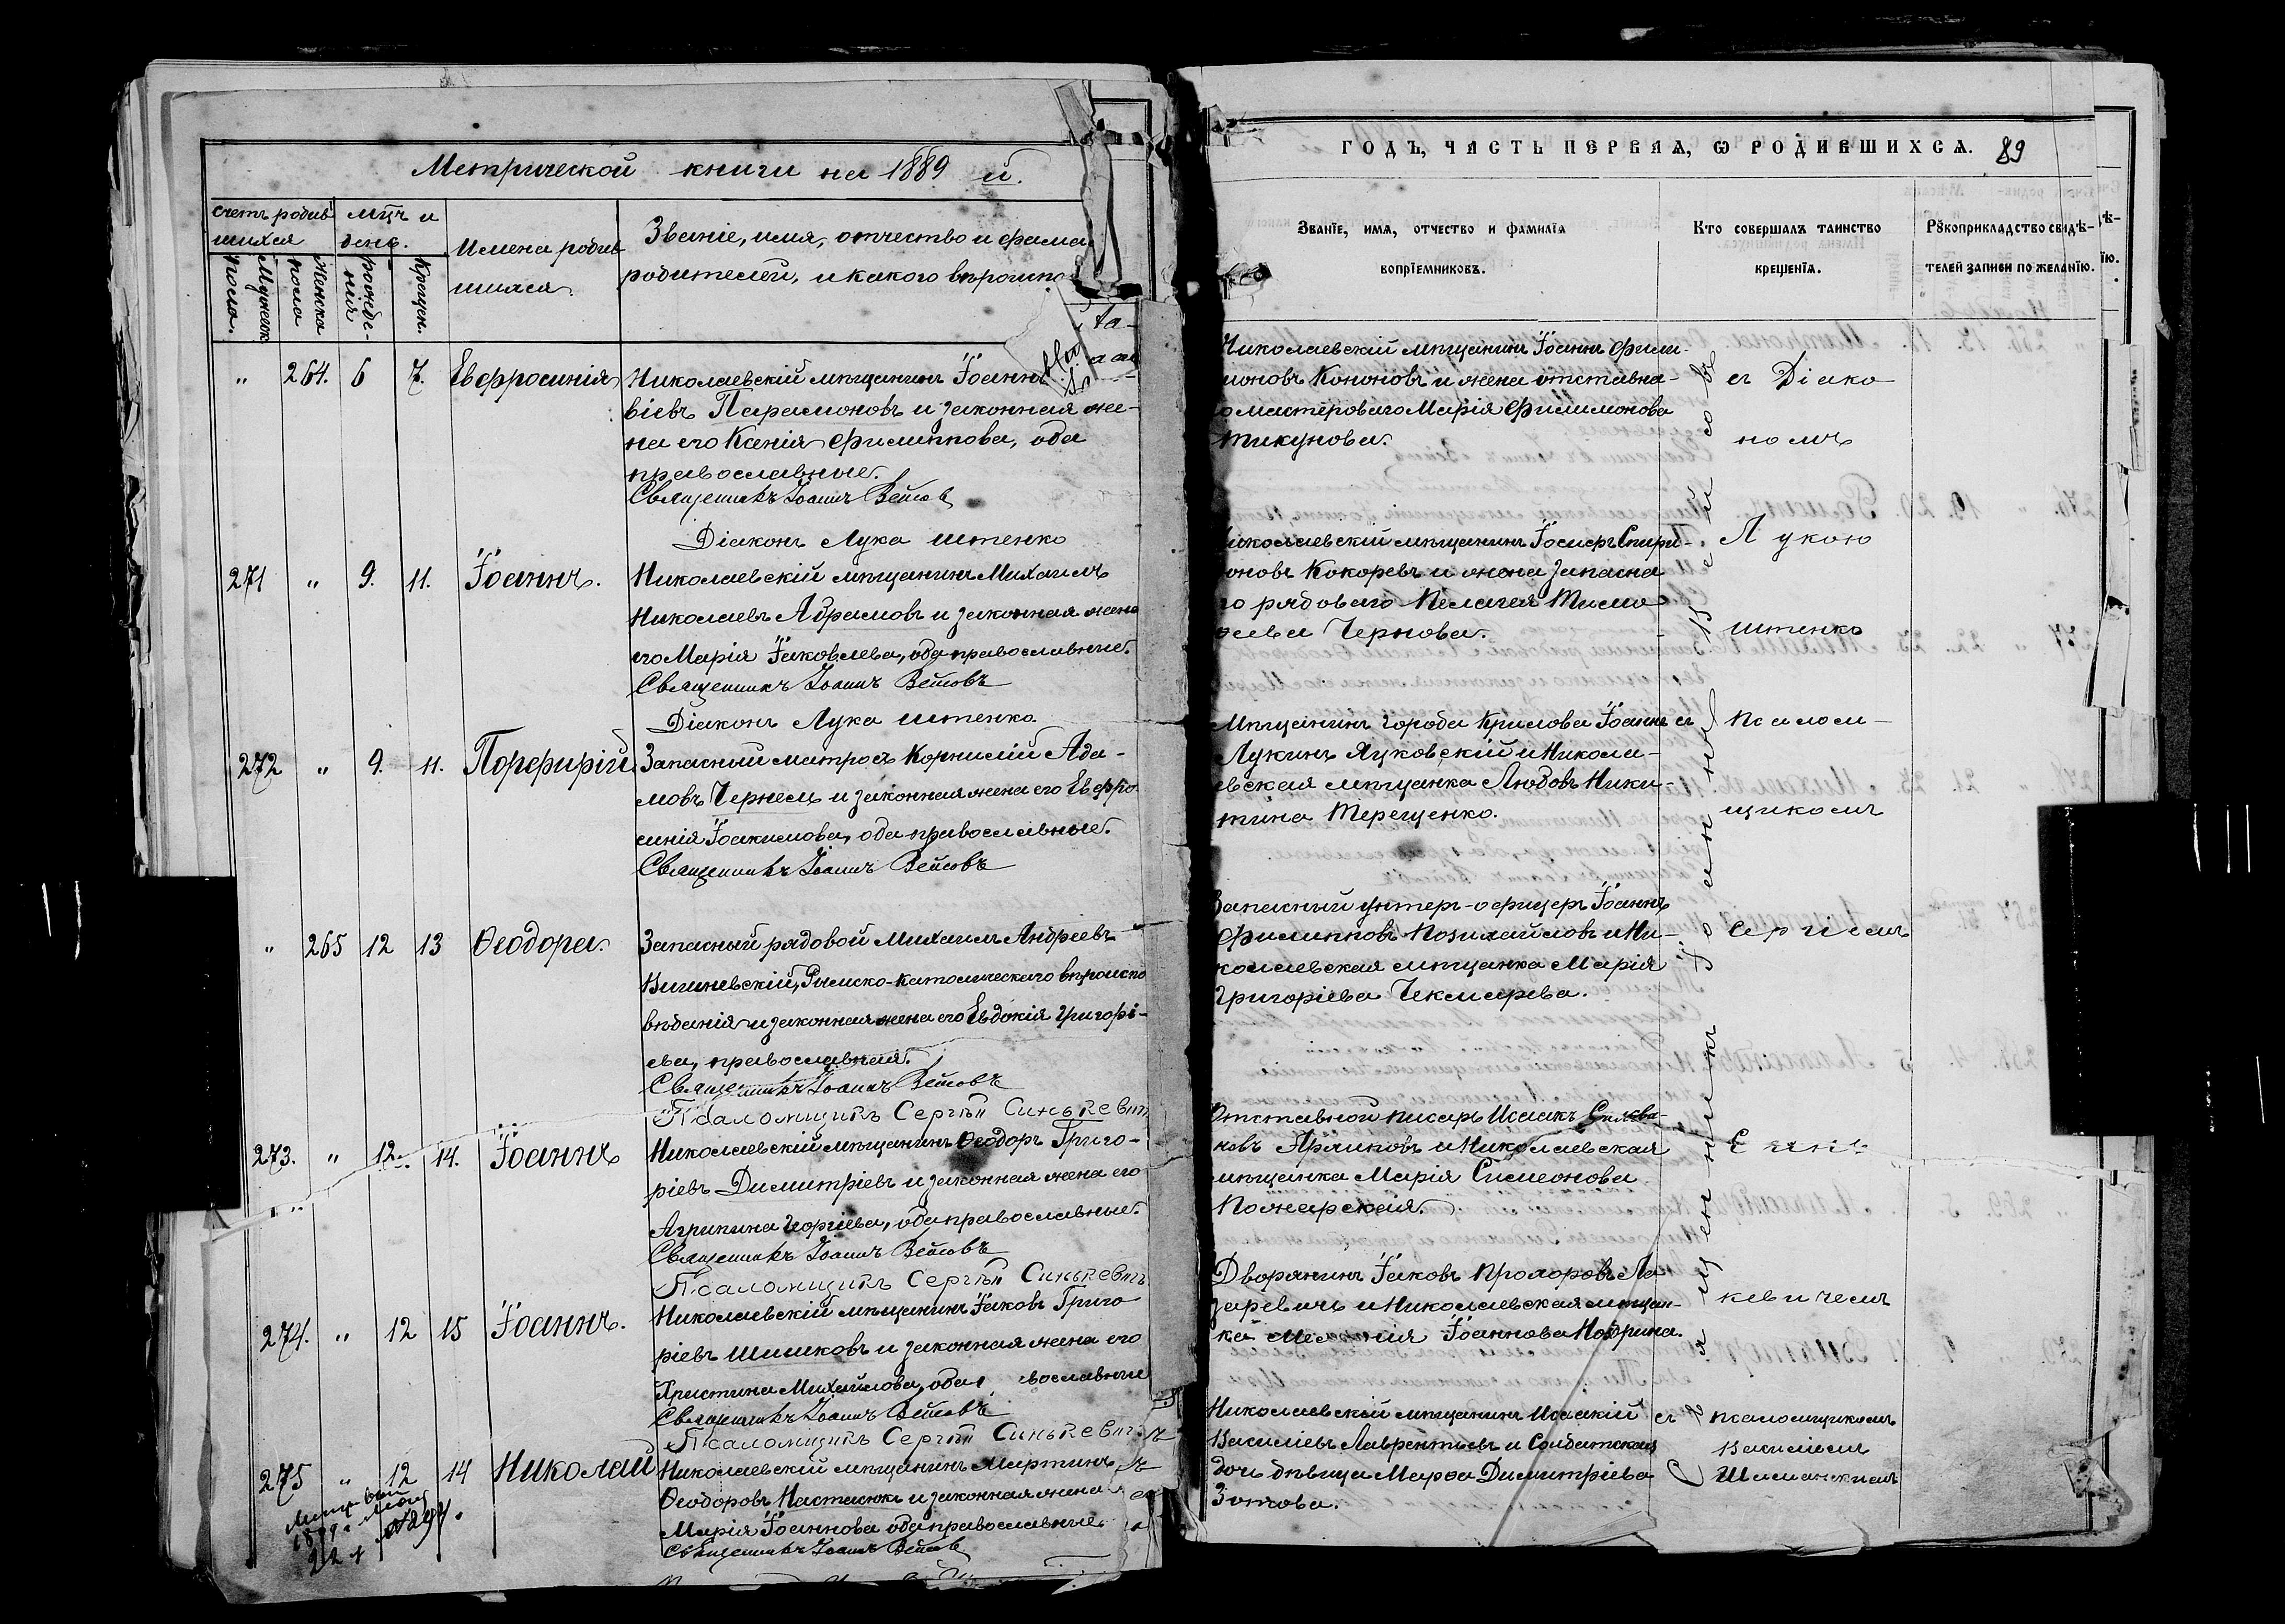 Метрической книги на 1889 й.
счетъ родив
шихся
Мужеск.
пола.
Женска
пола
Мцъ и
день.
рожде-
нія
Крещен.
Имена родив
шихся.
Званіе, имя, отчество и фами
родителей, и какого вѣроиспо
" 264. 6 7. Евфросинія
Николаевскій мѣщанинъ Іоаннъ
віевъ Парамоновъ и законная же-
на его Ксенія Филиппова, оба
православные.
Священникъ Іоаннъ Вейсовъ
Діаконъ Лука Иитенко
271 " 9. 11. Іоаннъ.
Николаевскій мѣщанинъ Михаилъ
Николаевъ Абрамовъ и законная жена
его Марія Іаковлева, оба православные.
Священникъ Іоаннъ Вейсовъ
Діаконъ Лука Иитенко.
272 " 9. 11. Порфирій.
Запасный матросъ Корнилій Ада-
мовъ Чернецъ и законная жена его Евфро
синія Іоакимова, оба православные.
Священникъ Іоаннъ Вейсовъ
" 265 12 13 Ѳеодора.
Запасный рядовой Михаилъ Андреевъ
Вишневскій, Римско-католическаго вѣроиспо
вѣданія и законная жена его Евдокія Григорі-
ева, православная.
Священникъ Іоаннъ Вейсовъ
Псаломщикъ Сергѣй Синькевич
273. " 12. 14. Іоаннъ
Николаевскій мѣщанинъ Ѳеодоръ Григо-
ріевъ Димитріевъ и законная жена его
Агрипина Георгіева, оба православные.
Священникъ Іоаннъ Вейсовъ
Псаломщикъ Сергѣй Синькевичъ
274. " 12 15 Іоаннъ.
Николаевскій мѣщанинъ Іаковъ Григо
ріевъ Шишковъ и законная жена его
Христина Михайлова, оба вославные
Священникъ Іоаннъ Вейсовъ
Псаломщикъ Сергѣй Синькевичъ
275 " 12 14 Николай
Николаевскій мѣщанинъ Мартинъ
Ѳеодоровъ Настасюкъ и законная жена
Марія Іоаннова оба православные.
Священникъ Іоаннъ Вейсовъ
ГОДЪ, ЧАСТЬ ПЕРВАЯ, Ѡ РОДИВШИХСѦ. 89
Званїе, има, отчество и фамилїа
воспрїемниковъ.
Кто совершалъ таинство
крещенїа.
Рꙋкоприкладство свидѣ-
телей записи по желанїю.
Николаевскій мѣщанинъ Іоаннъ Фили-
моновъ Кононовъ и жена отставна-
о мастероваго Марія Филимонова
Тикунова.
съ Діако
номъ
Николаевскій мѣщанинъ Іосифъ Спири-
оновъ Кокоревъ и жена запасна
го рядоваго Пелагея Тимо
еева Чернова.
Лукою
Иитенко
Мѣщанинъ города Крилова Іоаннъ
Лукинъ Яцковскій и Никола-
евская мѣщанка Любовь Ники-
тина Терещенко.
съ Псалом-
щикомъ
Запасный унтеръ-офицеръ Іоаннъ
Филипповъ Позихайловъ и Ни-
колаевская мѣщанка Марія
Григоріева Чекмарева.
Сергіемъ
Отставной писарь Исаакъ Силва-
новъ Аряпковъ и Николаевская
мѣщанка Марія Симеонова
Пожарская.
Синь
Дворянинъ Іаковъ Прохоровъ Ла
заревичъ и Николаевская мѣщан-
ка Меланія Іоаннова Нофрина.
кевичемъ
Николаевскій мѣщанинъ Исаакій
Василіевъ Лаврентьевъ и Солдатская
дочь дѣвица Марѳа Димитріева
Зотова.
съ псаломщикомъ
Василіемъ
Шаманскимъ
Священникъ Іоаннъ Вейсовъ